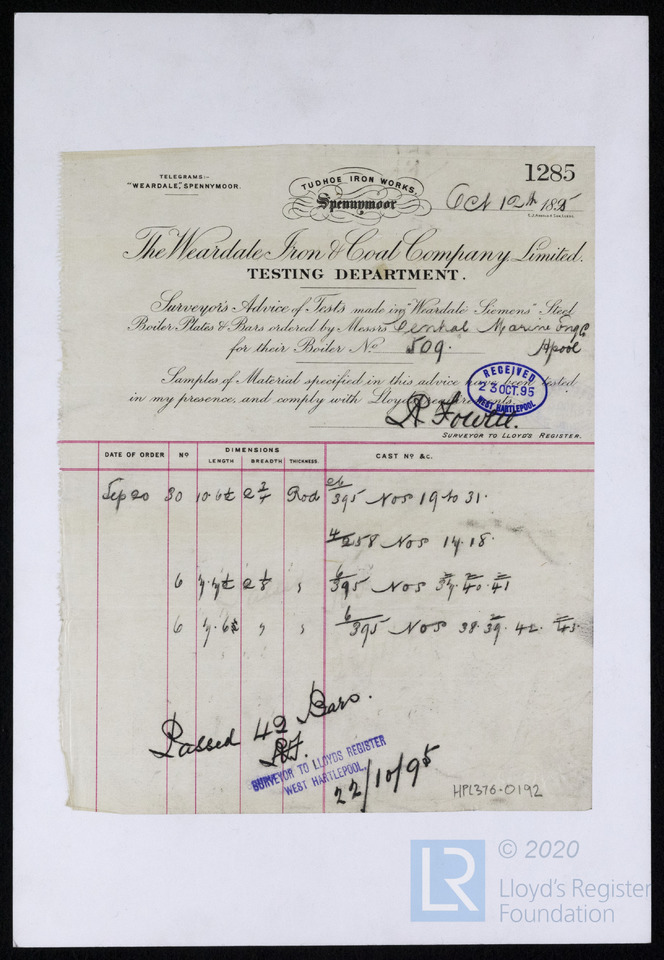 1285
TELEGRAMS:-
"WEARDALE," SPENNYMOOR.
TUDHOE IRON WORKS,
Spennymoor
Oct 12th 1895
The Weardale Iron & Coal Company, Limited.
TESTING DEPARTMENT.
Surveyor's Advice of Tests made in "Weardale Siemens" Steel
Boiler Plates & Bars ordered by Messrs Central Marine Eng Co
for their Boiler No 509. Hpool
Samples of Material specified in this advice have been tested
in my presence, and comply with Lloyds requirements.
RECEIVED
23 OCT. 95
WEST HARTLEPOOL
R Fowell.
SURVEYOR TO LLOYD'S REGISTER.
DATE OF ORDER No DIMENSIONS CAST No &c.
LENGTH BREADTH THICKNESS.
Sep 20 30 10. 6 2 3/4 Rod 26/395 Nos 19 to 31.
4/258 Nos 17. 18.
6 7. 7 2 1/8 " 6/395 Nos 37. 40. 41
6 7. 6 " " 6/395 Nos 38. 39. 42. 43.
Passed 42 Bars.
RF.
SURVEYOR TO LLOYDS REGISTER
WEST HARTLEPOOL.
22/10/95
HPL376-0192
LR © 2020
Lloyd's Register
Foundation